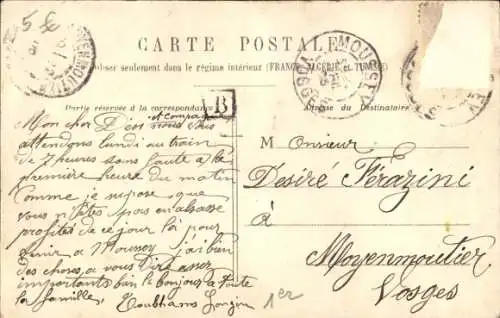 5 Sc
CARTE POSTALE
à utiliser seulement dans le régime intérieur (FRANCE, ALGÉRIE et TUNISIE)
MOUSSEY
VOSGES
Partie réservée à la correspondance
Adresse du Destinataire
B
et Compagnie
Mon cher Dési nous vous
attendons lundi au train
de 7 heures sans faute a la
première heure du matin
Comme je supose que
vous n'êtes pas en alsasse
profites de ce jour la pour
venir a Moussey j'ai bien
des choses a vous dire assez
importants bien le bonjour a toute
la famille,
Monsieur
Desiré Férazini
à
Moyenmoutier
Vosges
1er